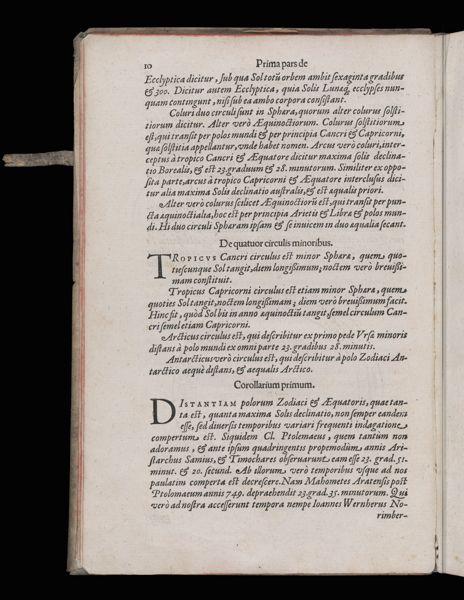 10 Prima pars de
Ecclyptica dicitur, sub qua Sol totũ orbem ambit sexaginta gradibus
& 300. Dicitur autem Ecclyptica, quia Solis Lunæq́, ecclypses nun-
quam contingunt, nisi sub ea ambo corpora consistant.
Coluri duo circuli sunt in Sphæra, quorum alter colurus solsti-
tiorum dicitur. Alter verò Æquinoctiorum. Colurus solstitiorum
est, qui transit per polos mundi & per principia Cancri & Capricorni,
quæ solstitia appellantur, vnde habet nomen. Arcus verò coluri, inter-
ceptus à tropico Cancri & Æquatore dicitur maxima solis declina-
tio Borealis, & est 23. graduum & 28. minutorum. Similiter ex oppo-
sita parte, arcus à tropico Capricorni & Æquatore interclusus dici-
tur alia maxima Solis declinatio australis, & est æqualis priori.
Alter verò colurus scilicet Æquinoctiorũ est, qui transit per pun-
cta æquinoctialia, hoc est per principia Arietis & Libræ & polos mun-
di. Hi duo circuli Sphæram ipsam & se inuicem in duo æqualia secant.
De quatuor circulis minoribus.
TROPICVS Cancri circulus est minor Sphæræ, quem quo-
tiescunque Sol tangit, diem longissimum; noctem verò breuissi-
mam constituit.
Tropicus Capricorni circulus est etiam minor Sphæræ, quem
quoties Sol tangit, noctem longissimam; diem verò breuissimum facit.
Hinc fit, quòd Sol bis in anno æquinoctiũ tangit semel circulum Can-
cri semel etiam Capricorni.
Arcticus circulus est, qui describitur ex primo pede Vrsæ minoris
distans à polo mundi ex omni parte 23. gradibus 28. minutis.
Antarcticus verò circulus est, qui describitur à polo Zodiaci An-
tarctico æquè distans, & æqualis Arctico.
Corollarium primum.
DISTANTIAM polorum Zodiaci & Æquatoris, quæ tan-
ta est, quanta maxima Solis declinatio, non semper eandem
esse, sed diuersis temporibus variari frequenti indagatione
compertum est. Siquidem Cl. Ptolemæus, quem tantùm non
adoramus, & ante ipsum quadringentis propemodùm annis Ari-
starchus Samius, & Timochares obseruarunt eam esse 23. grad. 51.
minut. & 20. secund. Ab illorum verò temporibus vsque ad nos
paulatim comperta est decrescere. Nam Mahometes Aratensis post
Ptolomæum annis 749. depræhendit 23. grad. 35. minutorum. Qui
verò ad nostra accesserunt tempora nempe Ioannes Wernherus No-
rimber-